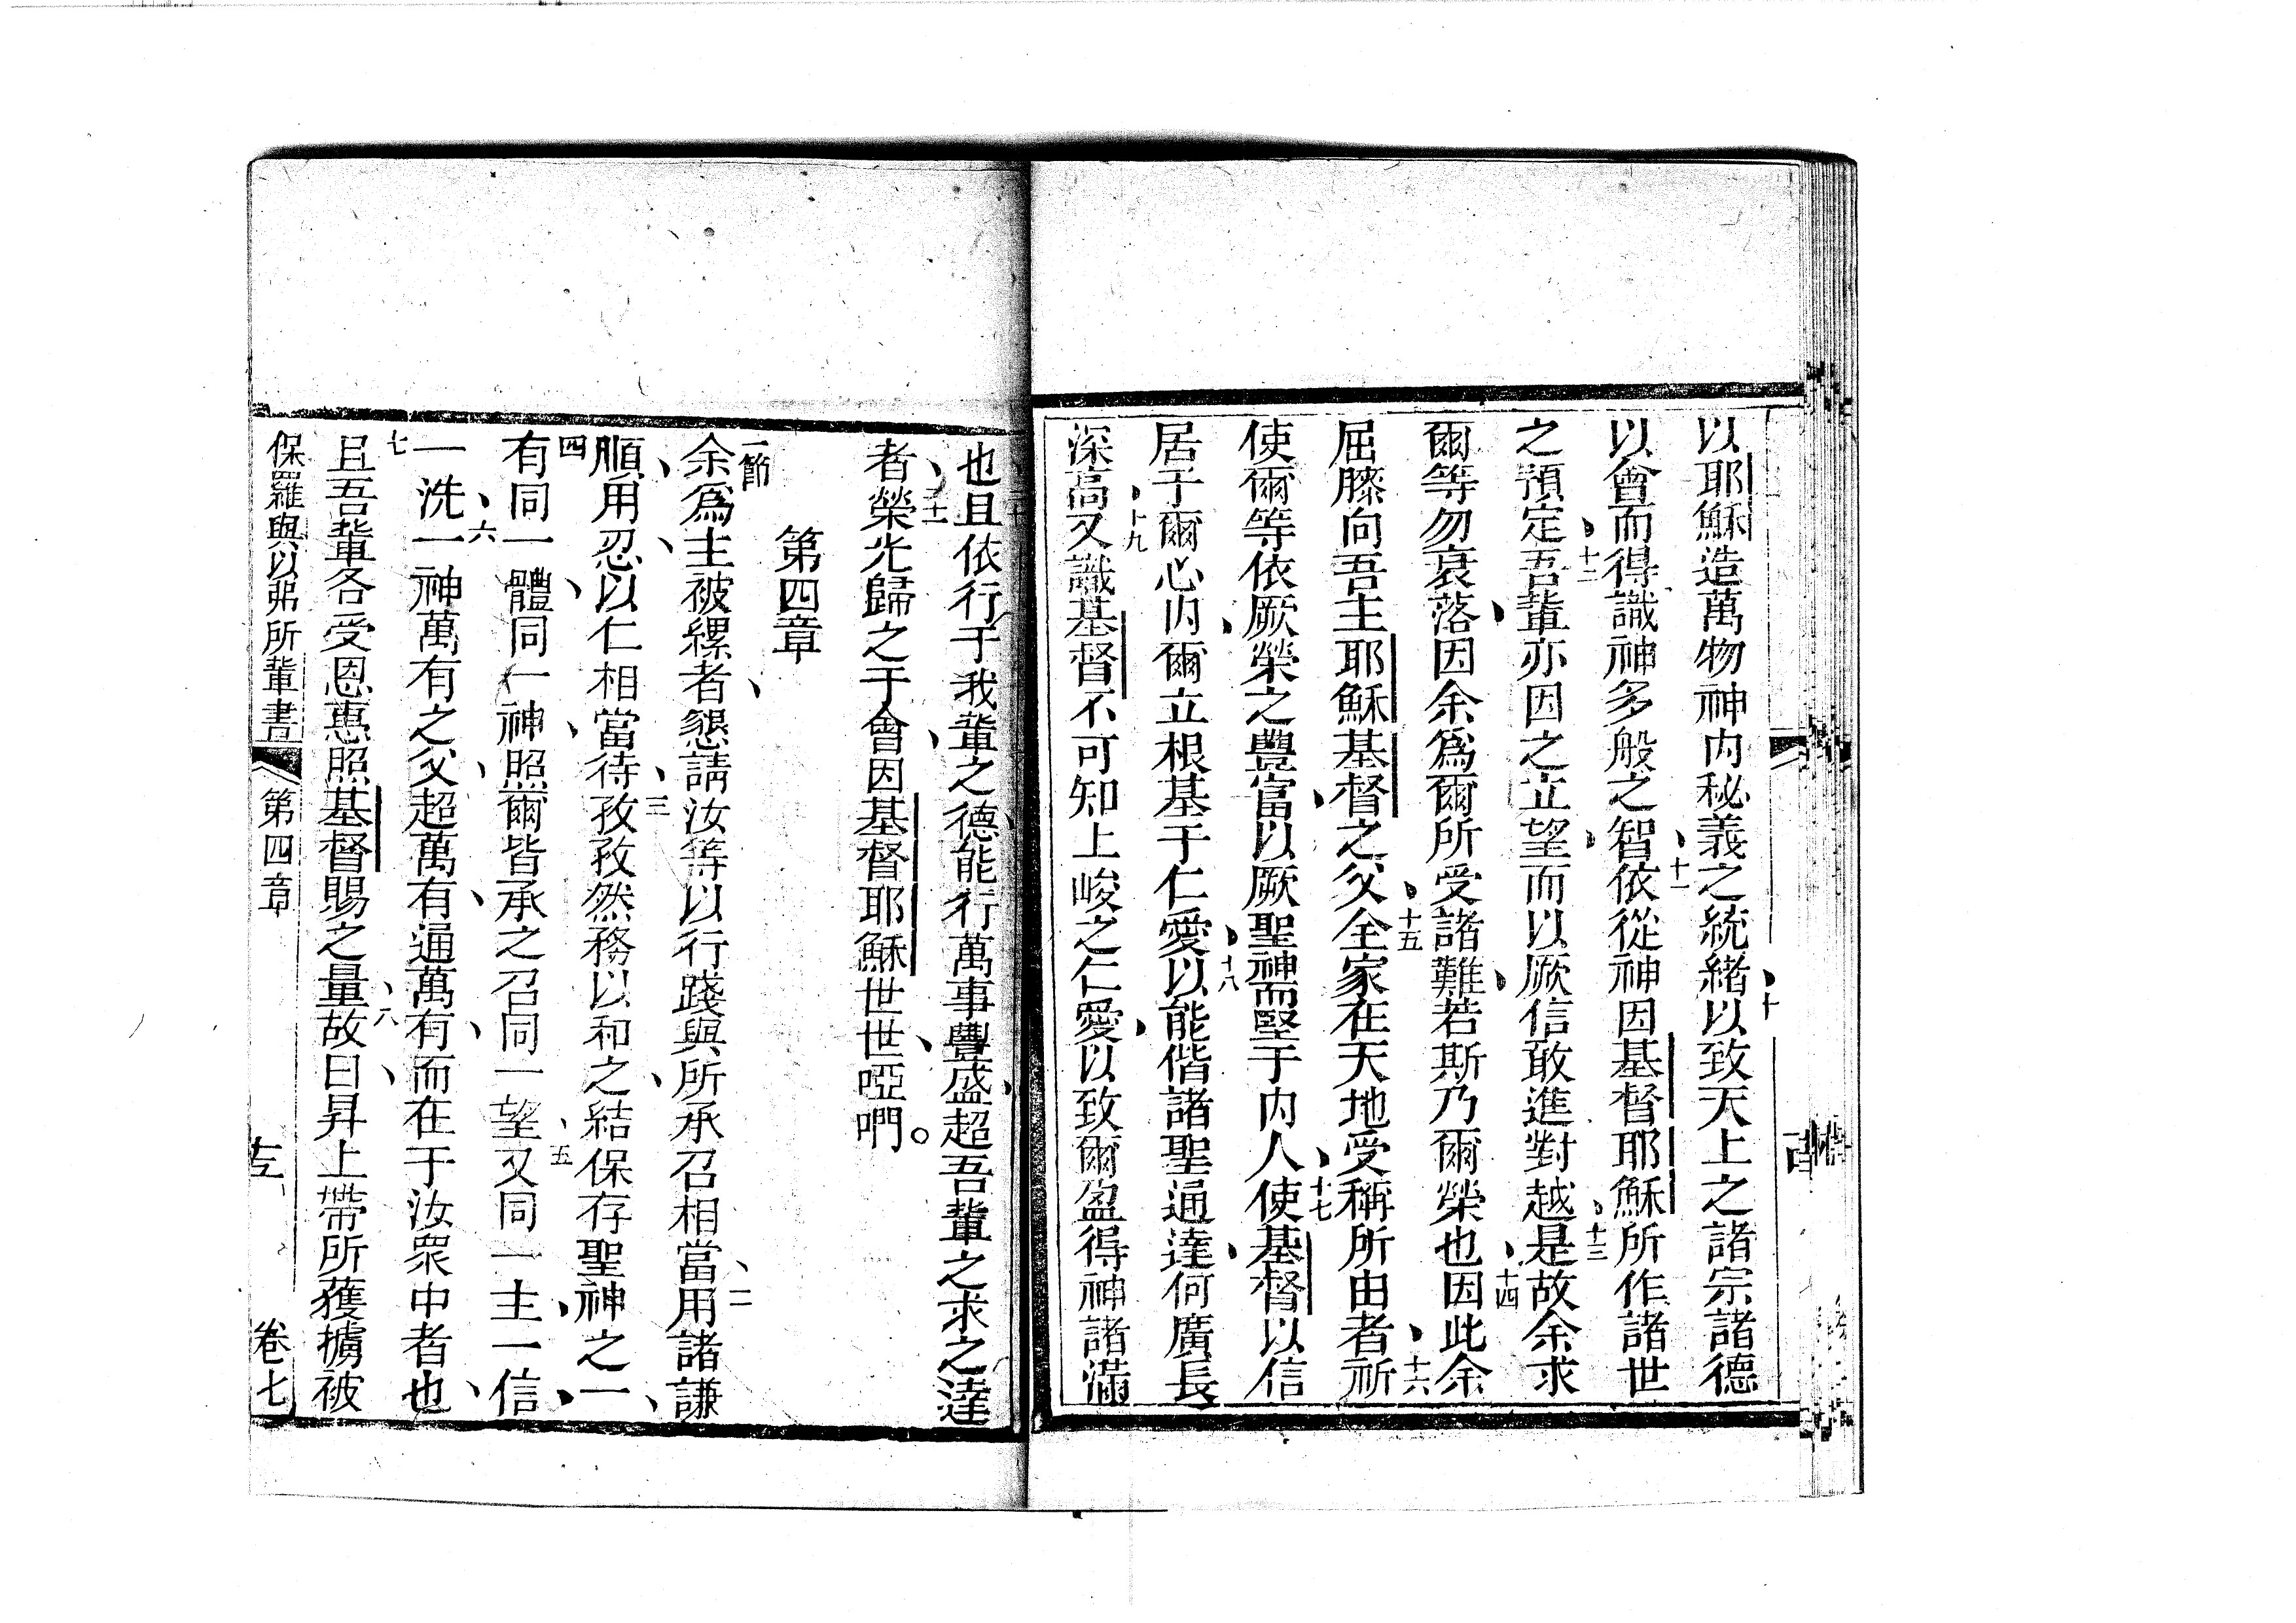 以耶穌造萬物神内秘義之統緒、十以致天上之諸宗諸德
以會而得識神多般之智、十一依從神因基督耶穌所作諸世
之預定、十二吾輩亦因之立望、而以厥信敢進對越、十三是故余求
爾等勿衰落、因余爲爾所受諸難、若斯乃爾榮也、十四因此余
屈膝向吾主耶穌基督之父、十五全家在天地受稱所由者、十六祈
使爾等依厥榮之豐富、以厥聖神而堅于内人、十七使基督以信
居于爾心内、爾立根基于仁愛、十八以能偕諸聖通達、何廣長
深高、十九又識基督不可知上峻之仁愛、以致爾盈得神諸滿
也、二十且依行于我輩之德能、行萬事豐盛、超吾輩之求之達
者、二十一榮光歸之于會、因基督耶穌世世、啞們。
第四章
一節余爲主被縲者、懇請汝等以行踐與所承召相當、二用諸謙
順、用忍、以仁相當待、三孜孜然務以和之結、保存聖神之一、
四有同一體、同一神、照爾皆承之召同一望、五又同一主、一信、
一洗、六一神萬有之父、超萬有、通萬有、而在于汝衆中者也、
七且吾輩各受恩惠照基督賜之量、八故曰、昇上帶所獲擄被
保羅與以弗所輩書 第四章 卷七